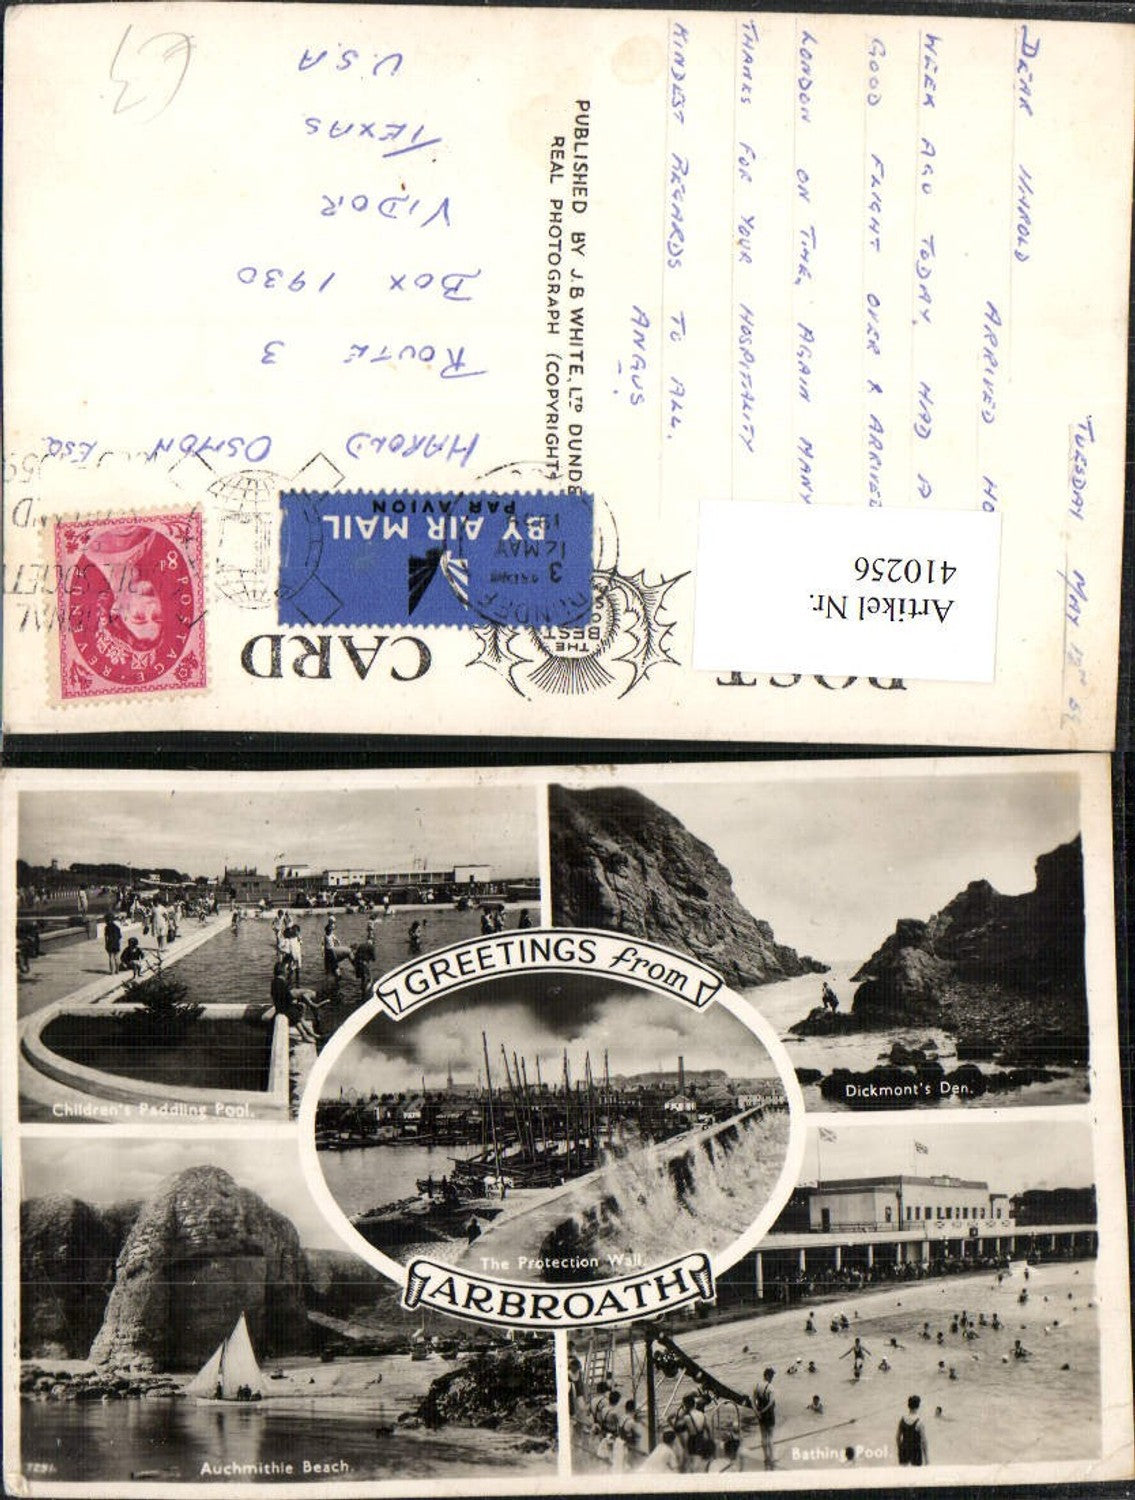 POST CARD
THE
BEST
Artikel Nr.
410256
TUESDAY MAY 12TH 59
DEAR HAROLD
ARRIVED HO
WEEK AGO TODAY. HAD A
GOOD FLIGHT OVER & ARRIVED
LONDON ON TIME, AGAIN MANY
THANKS FOR YOUR HOSPITALITY
KINDEST REGARDS TO ALL.
ANGUS.
PUBLISHED BY J.B WHITE, LTD DUNDE
REAL PHOTOGRAPH (COPYRIGHT)
BY AIR MAIL
PAR AVION
DUNDEE
3
12 MAY
POSTAGE REVENUE
8D
HAROLD OSMON ESQ.
ROUTE 3
BOX 1930
VIDOR
TEXAS
U.S.A
£3
GREETINGS from
ARBROATH
Children's Paddling Pool.
Dickmont's Den.
The Protection Wall.
Auchmithie Beach.
Bathing Pool.
7291.